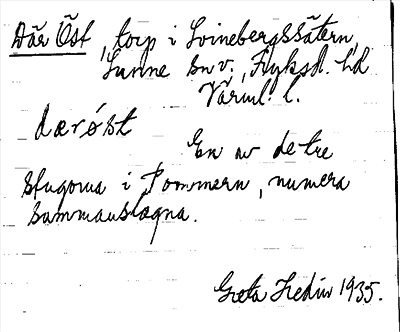 Där Öst, torp i Svinebergssätern,
Sunne sn v., Fryksd. hd
Värml. l.
dærøst
En av de tre
stugorna i Pommern, numera
sammanslagna.
Greta Hedin 1935.